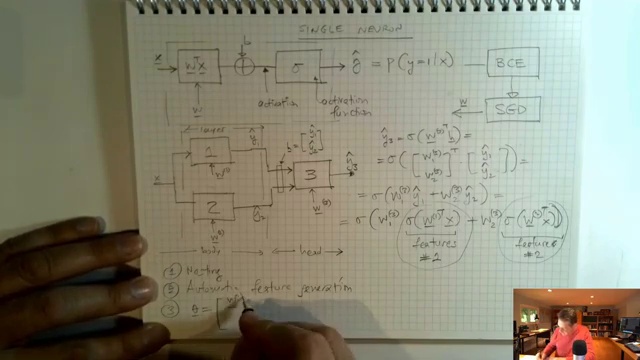 SINGLE NEURON
b
x → wᵀx → + → σ → ŷ = P(y=1/x) — BCE
w
activation
activation function
w
SGD
layer
ŷ₁
h = [ŷ₁ ŷ₂]
1
w⁽¹⁾
x
2
w⁽²⁾
ŷ₂
3
w⁽³⁾
ŷ₃
body
head
ŷ₃ = σ(w⁽³⁾ᵀ h) =
= σ([w₁⁽³⁾ w₂⁽³⁾]ᵀ [ŷ₁ ŷ₂]) =
= σ(w₁⁽³⁾ ŷ₁ + w₂⁽³⁾ ŷ₂) =
= σ(w₁⁽³⁾ σ(w⁽¹⁾ᵀ x) + w₂⁽³⁾ σ(w⁽²⁾ᵀ x))
features #2
features #2
① Nesting
② Automatic feature generation
③